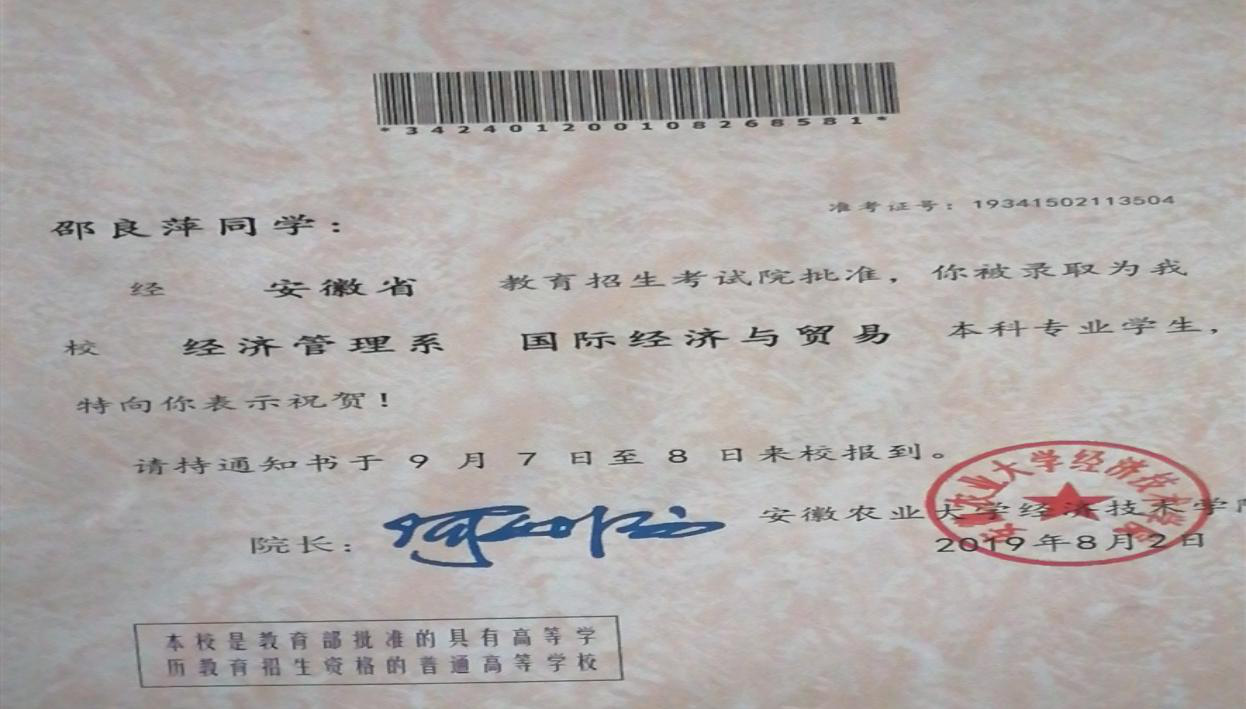 *3424012001082 68581*
准考证号：19341502113504
邵良萍同学：
经 安徽省 教育招生考试院批准，你被录取为我
校 经济管理系 国际经济与贸易 本科专业学生，
特向你表示祝贺！
请持通知书于 9 月 7 日至 8 日来校报到。
院长：
安徽农业大学经济技术学院
2019年8月2日
本校是教育部批准的具有高等学
历教育招生资格的普通高等学校